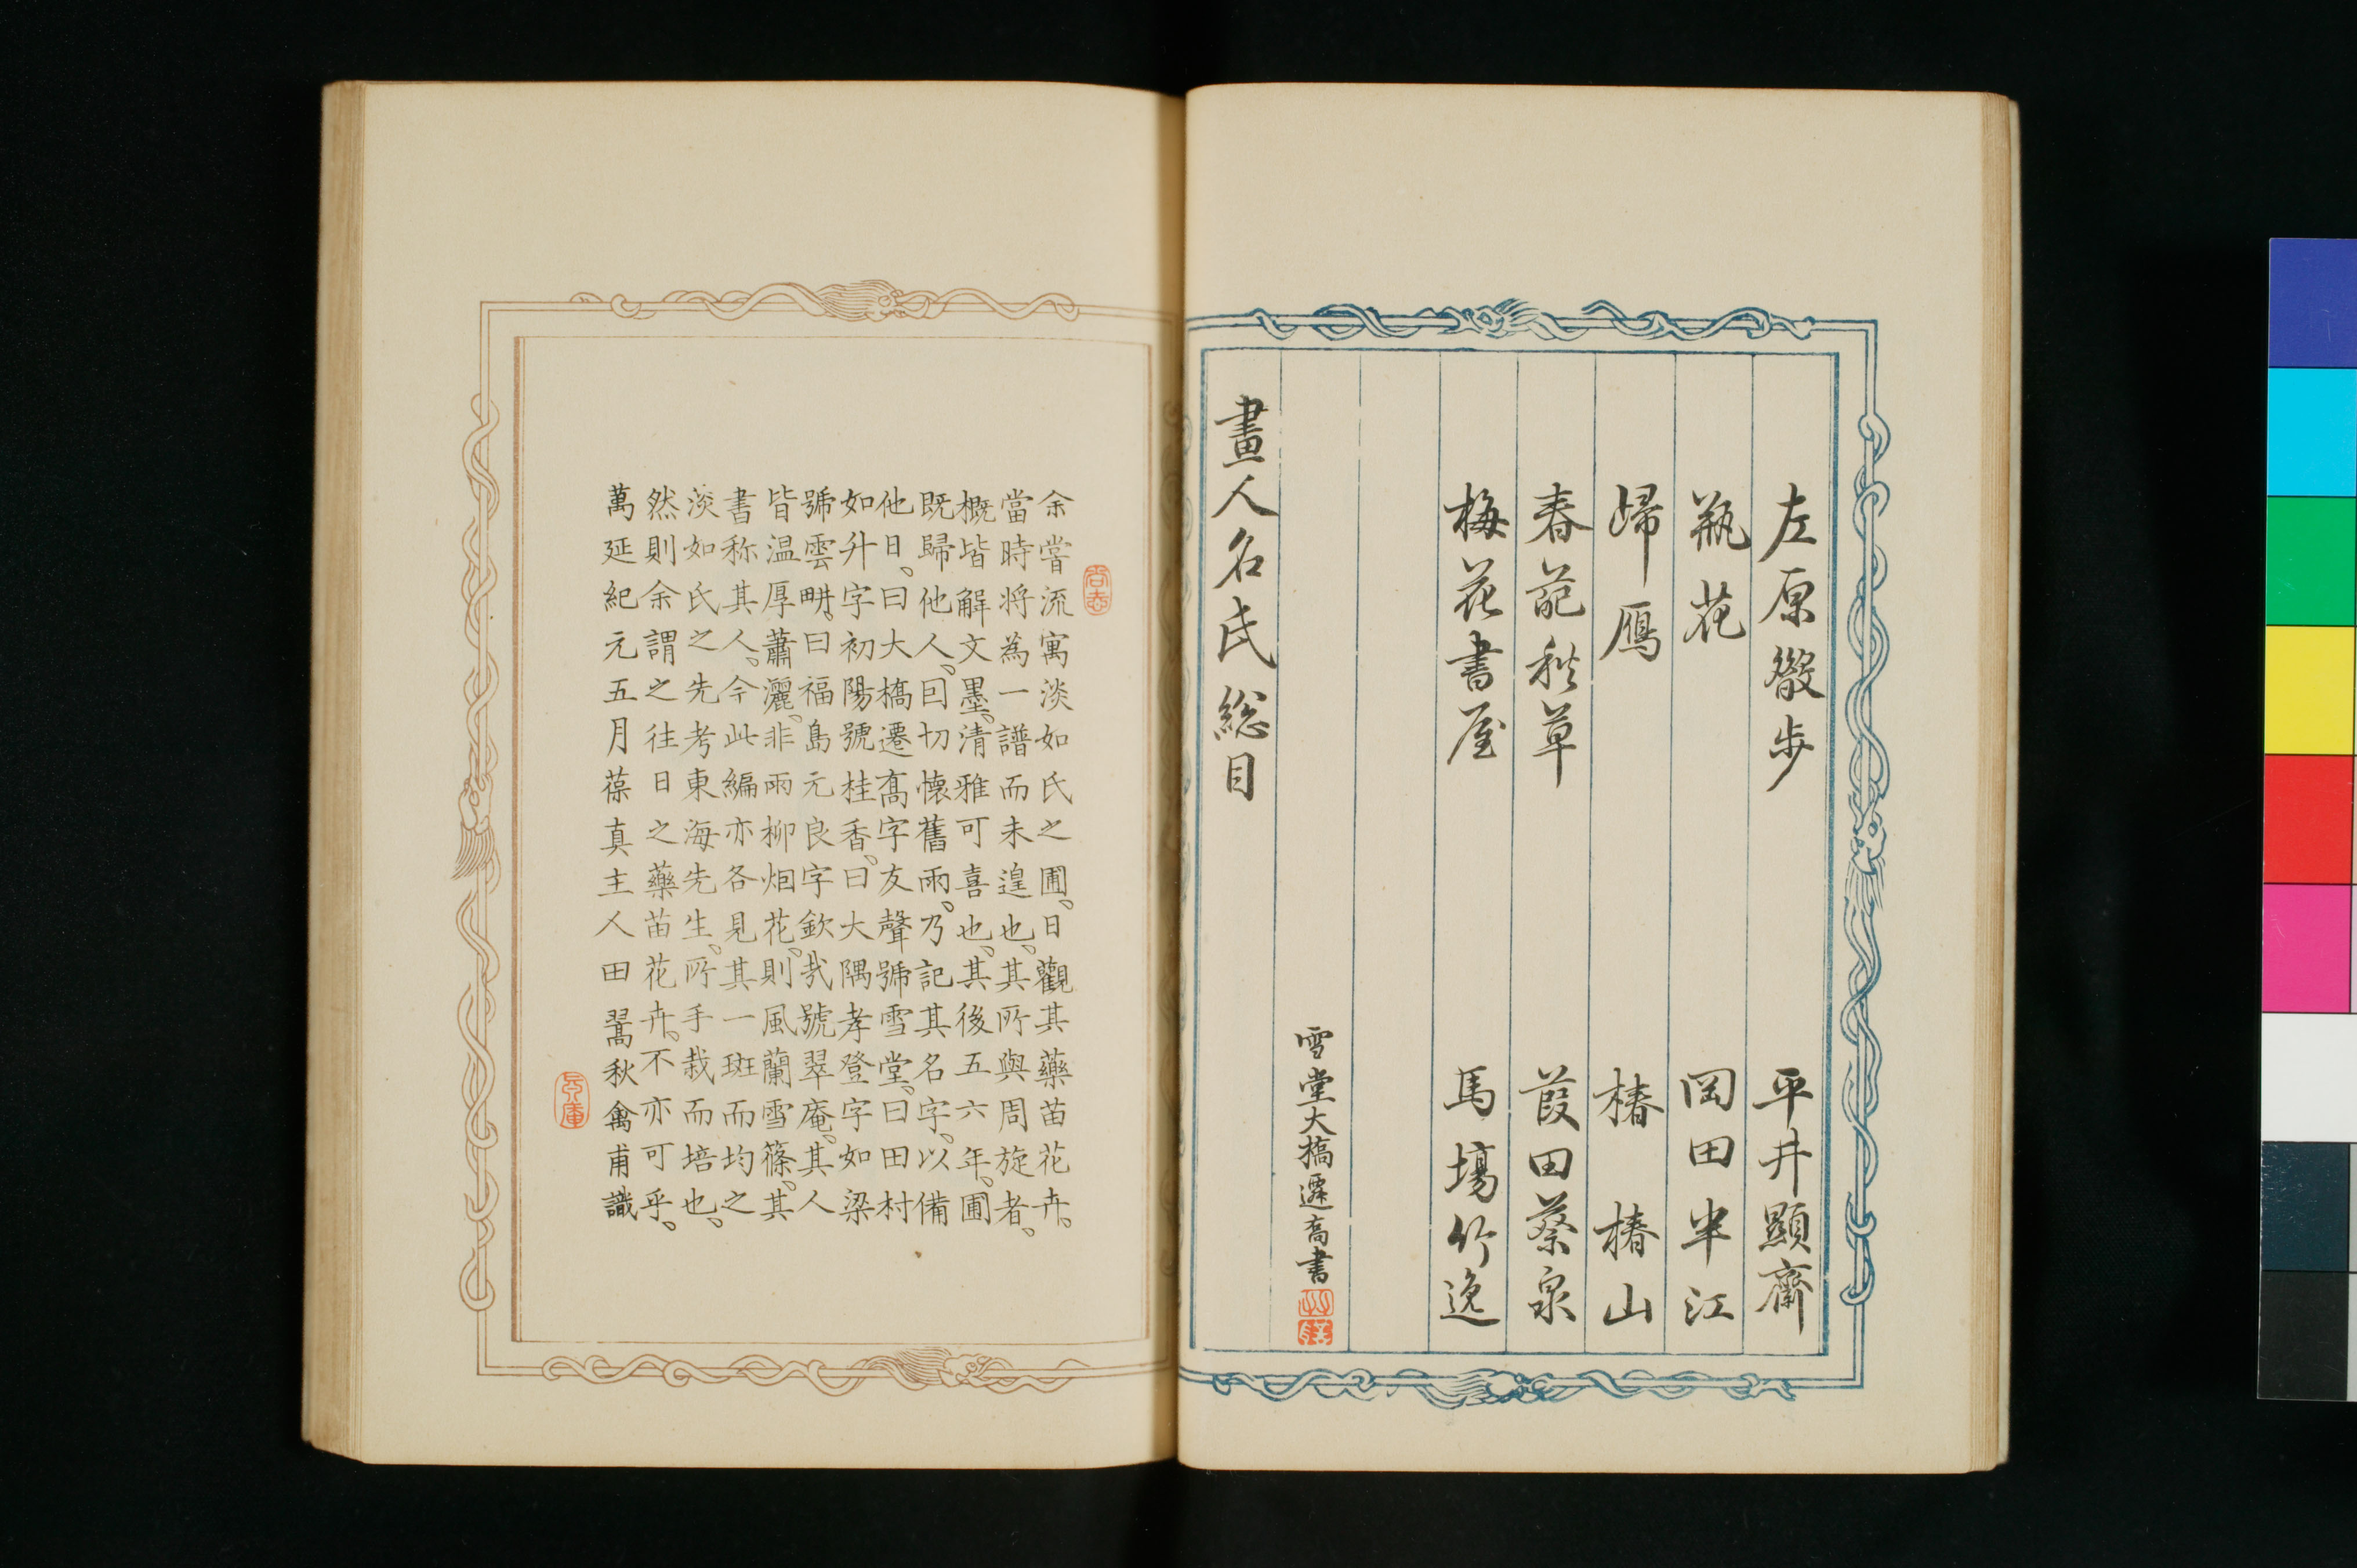 左原散歩　平井顯齋
瓶花　岡田半江
歸鴈　椿椿山
春葩秋草　葭田蔡泉
梅花書屋　馬場竹逸
雪堂大橋遷高書
畫人名氏総目
余嘗流寓淡如氏之圃、日觀其藥苗花卉、
當時将為一譜而未遑也、其所與周旋者、
概皆解文墨、清雅可喜也、其後五六年、圃
既歸他人、回切懷舊雨、乃記其名字、以備
他日、曰大橋遷高字友聲號雪堂、曰田村
如升字初陽號桂香、曰大隅孝登字如梁
號雲畊、曰福島元良字欽哉號翠庵、其人
皆温厚蕭灑、非雨柳烟花、則風蘭雪篠、其
書称其人、今此編亦各見其一斑而均之
淡如氏之先考東海先生、所手栽而培也、
然則余謂之往日之藥苗花卉、不亦可乎、
萬延紀元五月葆真主人田翯秋禽甫識